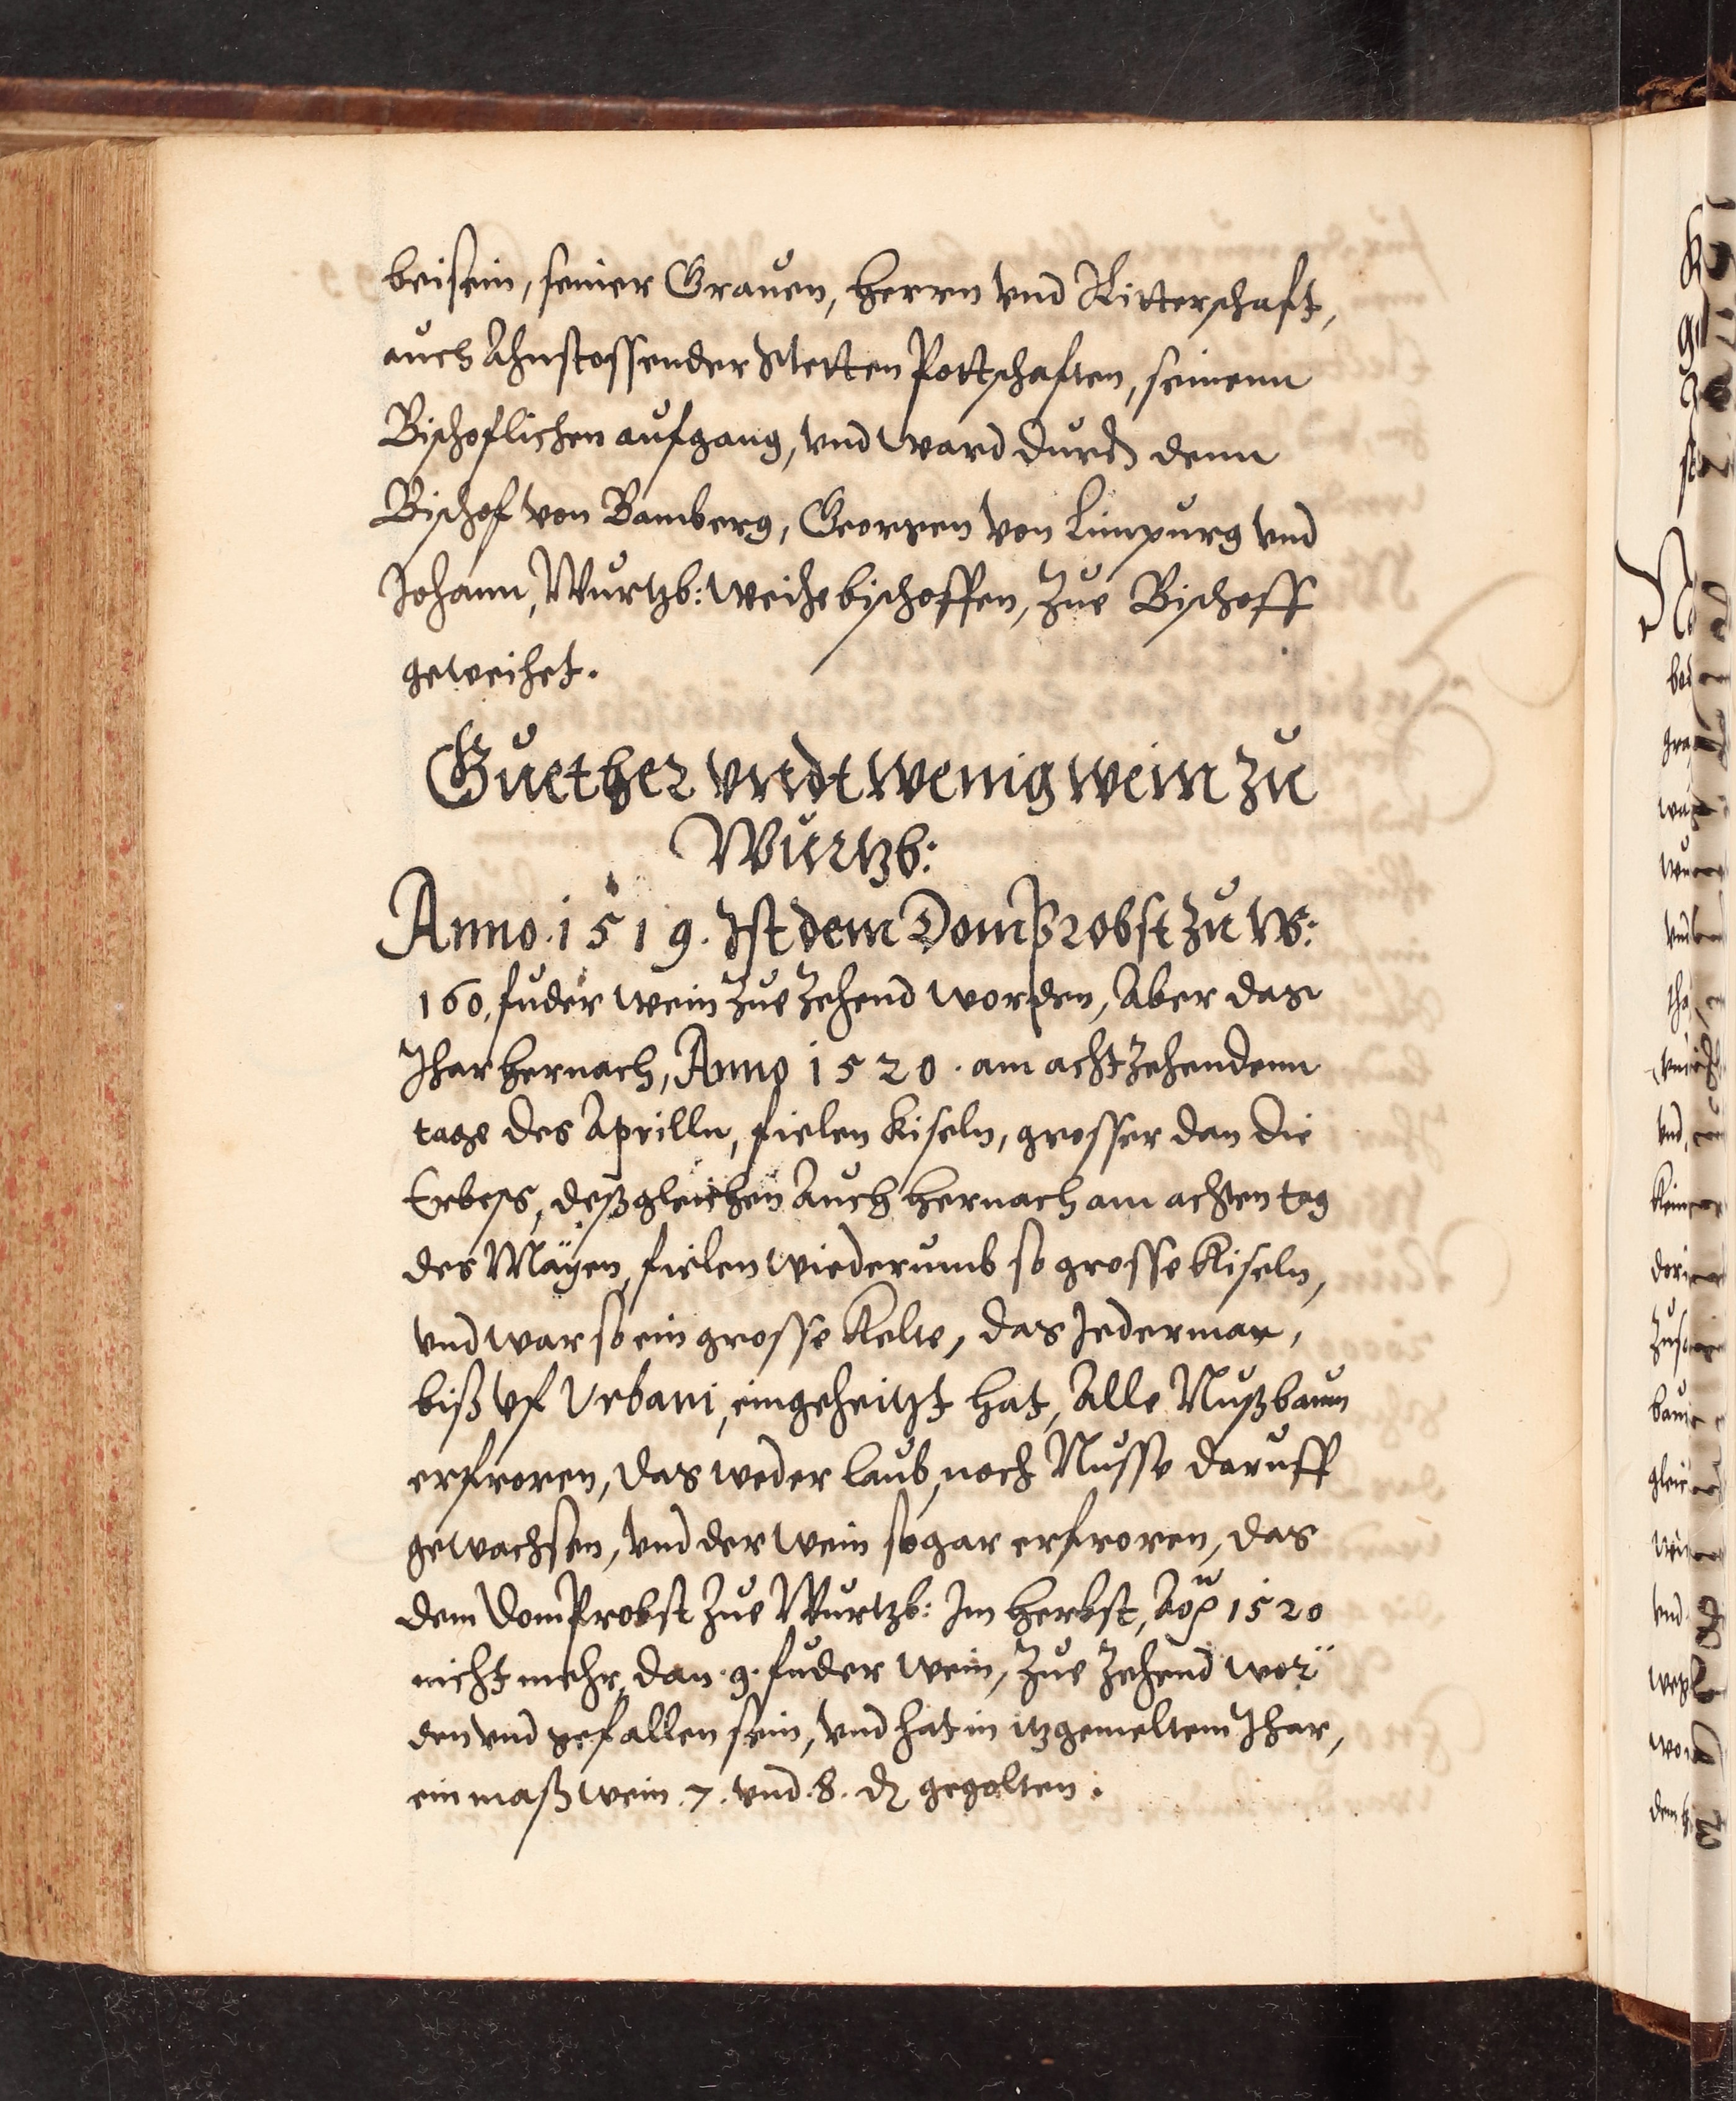 beisein, seiner Grauen, herrn vnd Ritterschaft,
auch Ahnstossender Stetten Pottschaften, seinenn
Bischoflichen aufgang, vnd ward durch denn
Bischof von Bamberg, Georgen von Limpurg vnd
Johann, Wurtzb: Weihebischoffen, Zue Bischoff
geweihet.
Guether vndt wenig wein zu
Wurtzb:
Anno. 1519. Ist dem Domprobst zu W:
160, fuder wein Zue Zehend worden, Aber das
Jhar hernach, Anno 1520. am achtzehendenn
tage des Aprilln, fielen Kiseln, grosser dan die
Erbess, deßgleichen Auch hernach am achten tag
des Mäyen, fielen wiederumb so grosse Kiseln,
vnd war so ein grosse Kelte, das Jederman,
biß vf Vrbani, eingeheitzt hat, Alle Nußbaum
erfroren, das weder laub, noch Nusse daruff
gewachsen, vnd der Wein sogar erfroren, das
dem DomProbst Zue Wurtzb: Im herbst, 1520
nicht mehr, dan .9. fuder wein, Zue Zehend wor¨
den vnd gefallen sein, vnd hat in itzgemeltem Jhar,
ein maß wein .7. vnd .8. d gegolten.